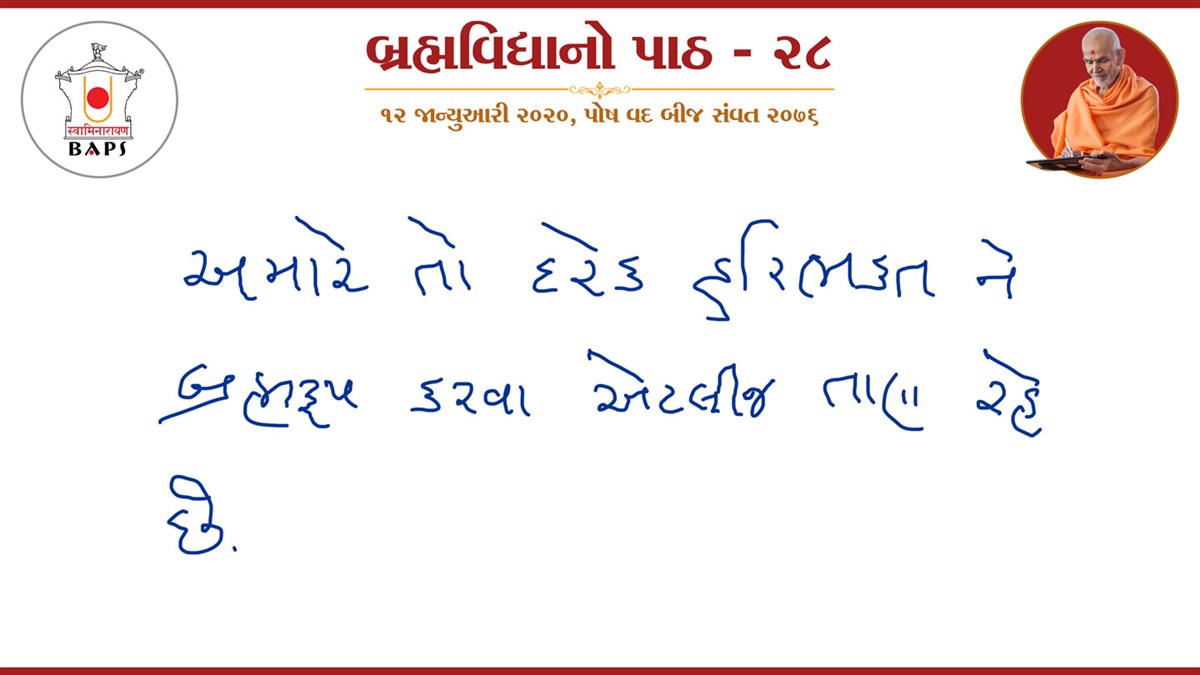 બ્રહ્મવિદ્યાનો પાઠ - ૨૮
૧૨ જાન્યુઆરી ૨૦૨૦, પોષ વદ બીજ સંવત ૨૦૭૬
स्वामिनारायण
BAPS
અમારે તો દરેક હરિભક્ત ને
બ્રહ્મરૂપ કરવા એટલીજ તાણ રહે
છે.